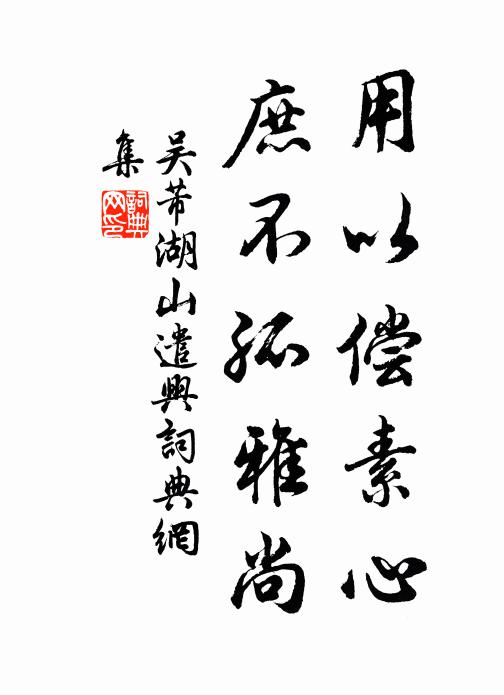 用以偿素心
庶不孤雅尚
吴芾湖山遣興詞典網
集
詞典
网印